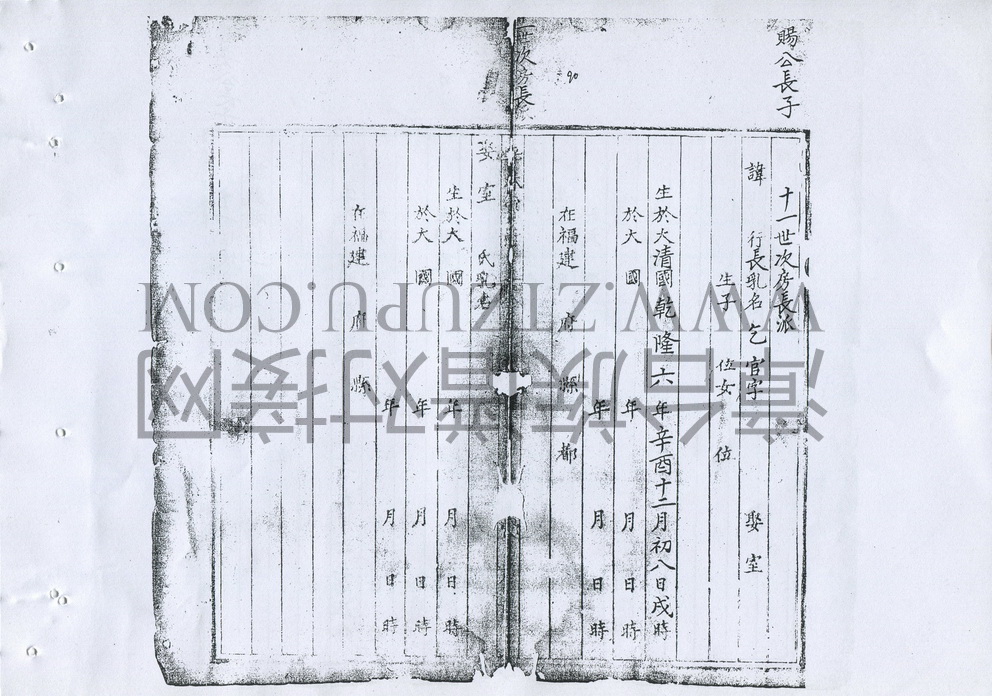 賜公長子
十一世次房長派
諱 行長乳名乞 官字 娶室
生子 位女 位
生於大清國乾隆六年辛酉十二月初八日戌時
於大 國 年 月 日 時
年 月 日 時
在福建 府 縣 都
世次房長
90
娶室 氏乳名
生於大 國 年 月 日 時
於大 國 年 月 日 時
年 月 日 時
在福建 府 縣
WWW.ZTZUPU.COM
漳台族谱对接网